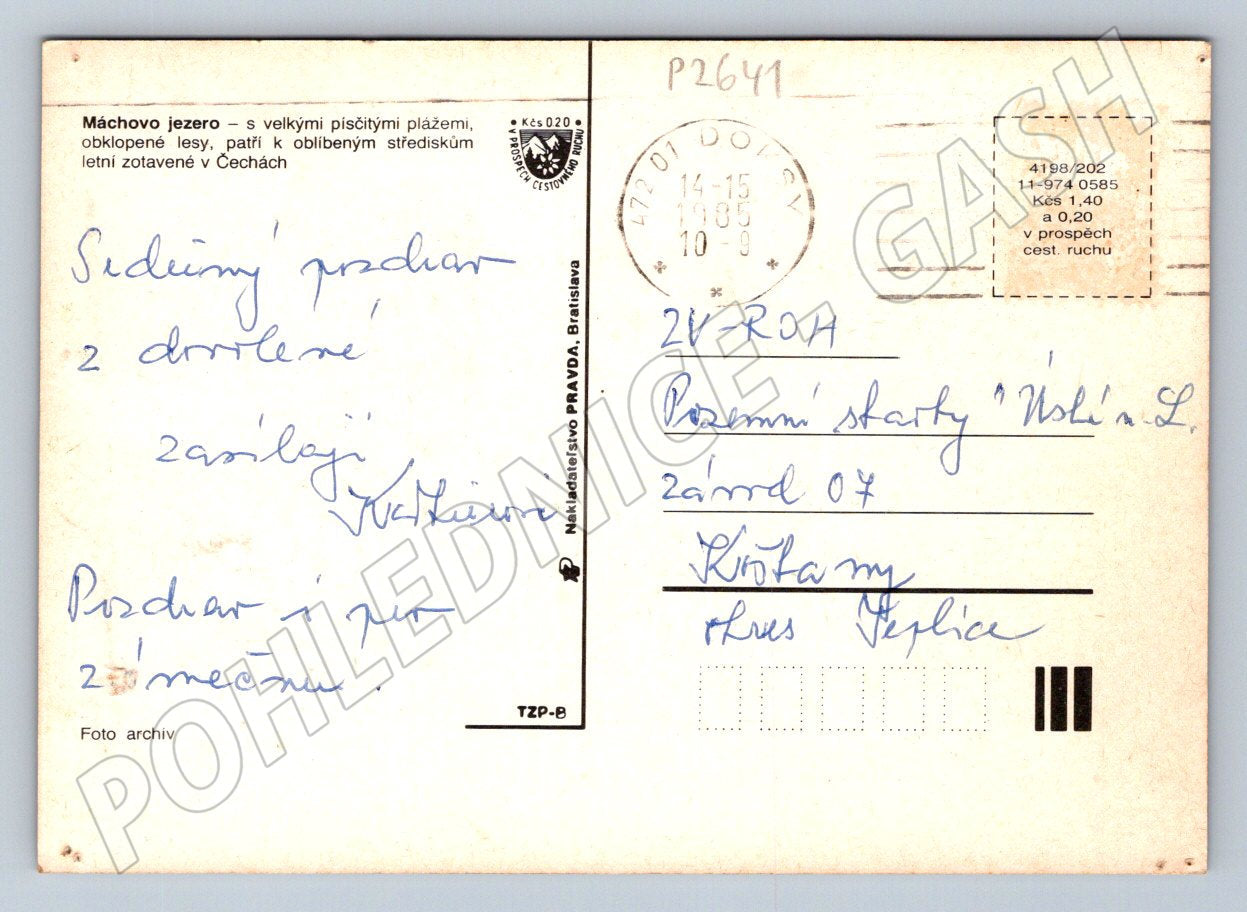 P2641
Máchovo jezero – s velkými písčitými plážemi,
obklopené lesy, patří k oblíbeným střediskům
letní zotavené v Čechách
• Kčs 0.20 •
V PROSPĚCH CESTOVNÉHO RUCHU
472 01 DOKSY
14-15
1985
10 -9
4198/202
11-974 0585
Kčs 1,40
a 0,20
v prospěch
cest. ruchu
Srdečný pozdrav
z dovolené
zasílají
Pozdrav i pro
z
Nakladatelstvo PRAVDA, Bratislava
TZP-8
Foto archív
ZV-ROH
Pozemní stavby Ústí n. L.
závod 07
okres Teplice
POHLEDNICE - GASH